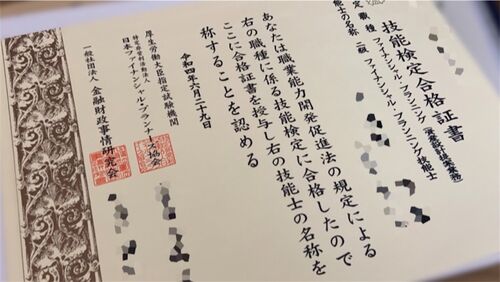 技能検定合格証書
検定職種 ファイナンシャル・プランニング(資産設計提案業務)
技能士の名称 二級 ファイナンシャル・プランニング技能士
あなたは職業能力開発促進法の規定による
右の職種に係る技能検定に合格したので
ここに合格証書を授与し右の技能士の名称を
称することを認める
令和四年六月二十九日
厚生労働大臣指定試験機関
特定非営利活動法人
日本ファイナンシャル・プランナーズ協会
一般社団法人 金融財政事情研究会